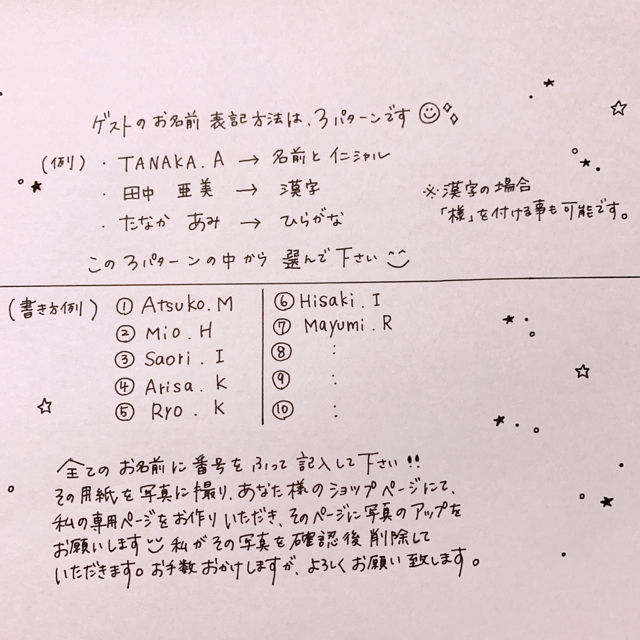 ゲストのお名前 表記方法は、3パターンです
(例)・TANAKA.A → 名前とイニシャル
・田中 亜美 → 漢字
・たなか あみ → ひらがな
※漢字の場合
「様」を付ける事も可能です。
この3パターンの中から 選んで下さい
(書き方例)
① Atsuko.M
② Mio.H
③ Saori.I
④ Arisa.K
⑤ Ryo.K
⑥ Hisaki.I
⑦ Mayumi.R
⑧ :
⑨ :
⑩ :
全てのお名前に番号をふって記入して下さい!!
その用紙を写真に撮り、あなた様のショップページにて、
私の専用ページをお作りいただき、そのページに写真のアップを
お願いします 私がその写真を確認後削除して
いただきます。お手数おかけしますが、よろしくお願い致します。